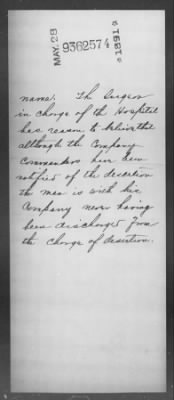 MAY. 28
9362574
1891
name. The Surgeon
in charge of the Hospital
has reason to believe that
although the Company
Commanders have been
notified of the desertion
the man is with his
Company never having
been discharged from
the charge of desertion.